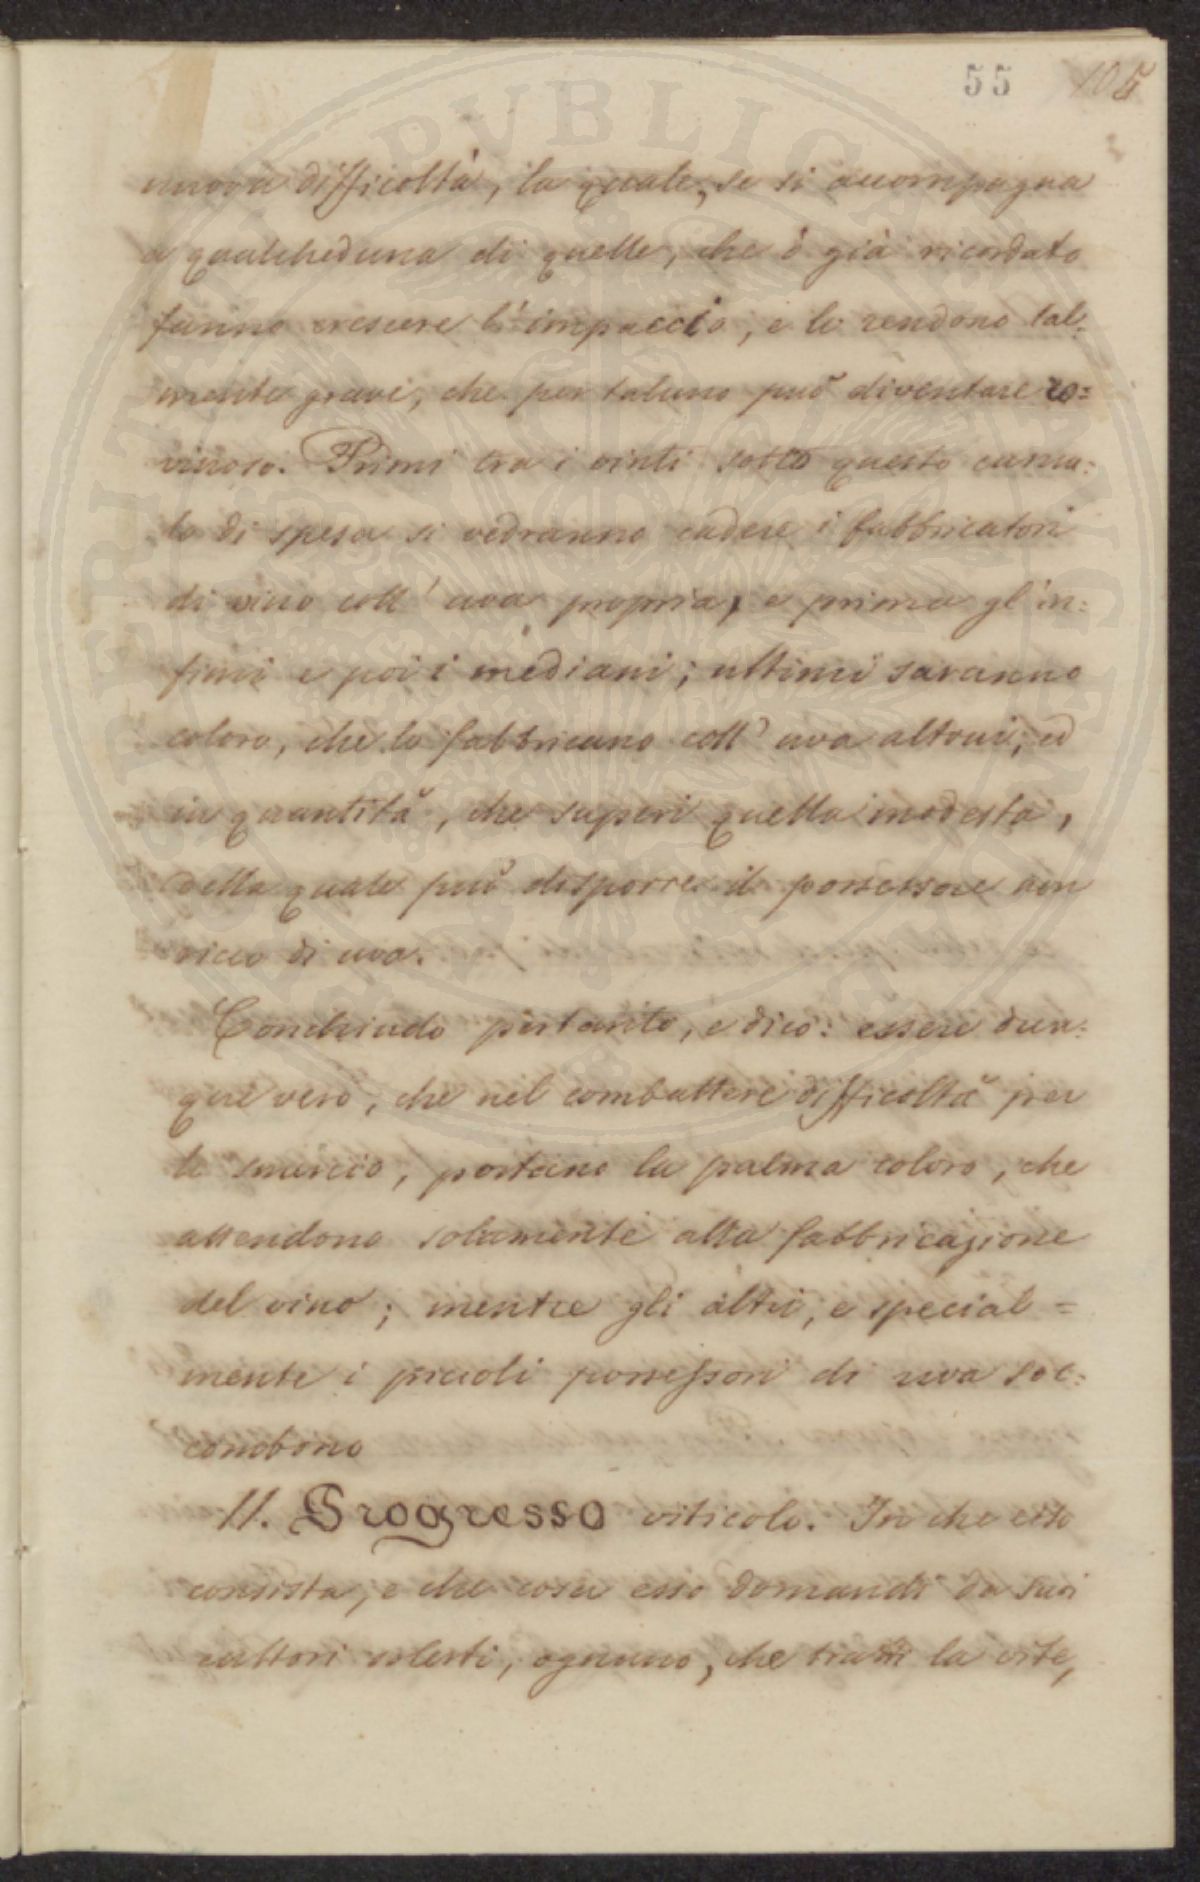 55 105
nuova difficoltà, la quale, se si accompagna
a qualcheduna di quelle, che ò già ricordato
fanno crescere l'impaccio, e lo rendono tal-
mente grave, che per taluno può diventare ro=
vinoso. Primi tra i vinti sotto questo cumu:
lo di spesa si vedranno cadere i fabbricatori
di vino coll' uva propria, e prima gl'in:
fimi e poi i mediani; ultimi saranno
coloro, che lo fabbricano coll' uva altrui, ed
in quantità, che superi quella modesta,
della quale può disporre il possessore non
ricco di uva.
Conchiudo pertanto, e dico: essere dun:
que vero, che nel combattere difficoltà per
lo smercio, portano la palma coloro, che
attendono solamente alla fabbricazione
del vino; mentre gli altri, e special=
mente i piccoli possessori di uva soc:
combono
11. Progresso viticolo. In che esso
consista, e che cosa esso domandi da suoi
cultori solerti, ognuno, che tratti la vite,
PVBLICAE